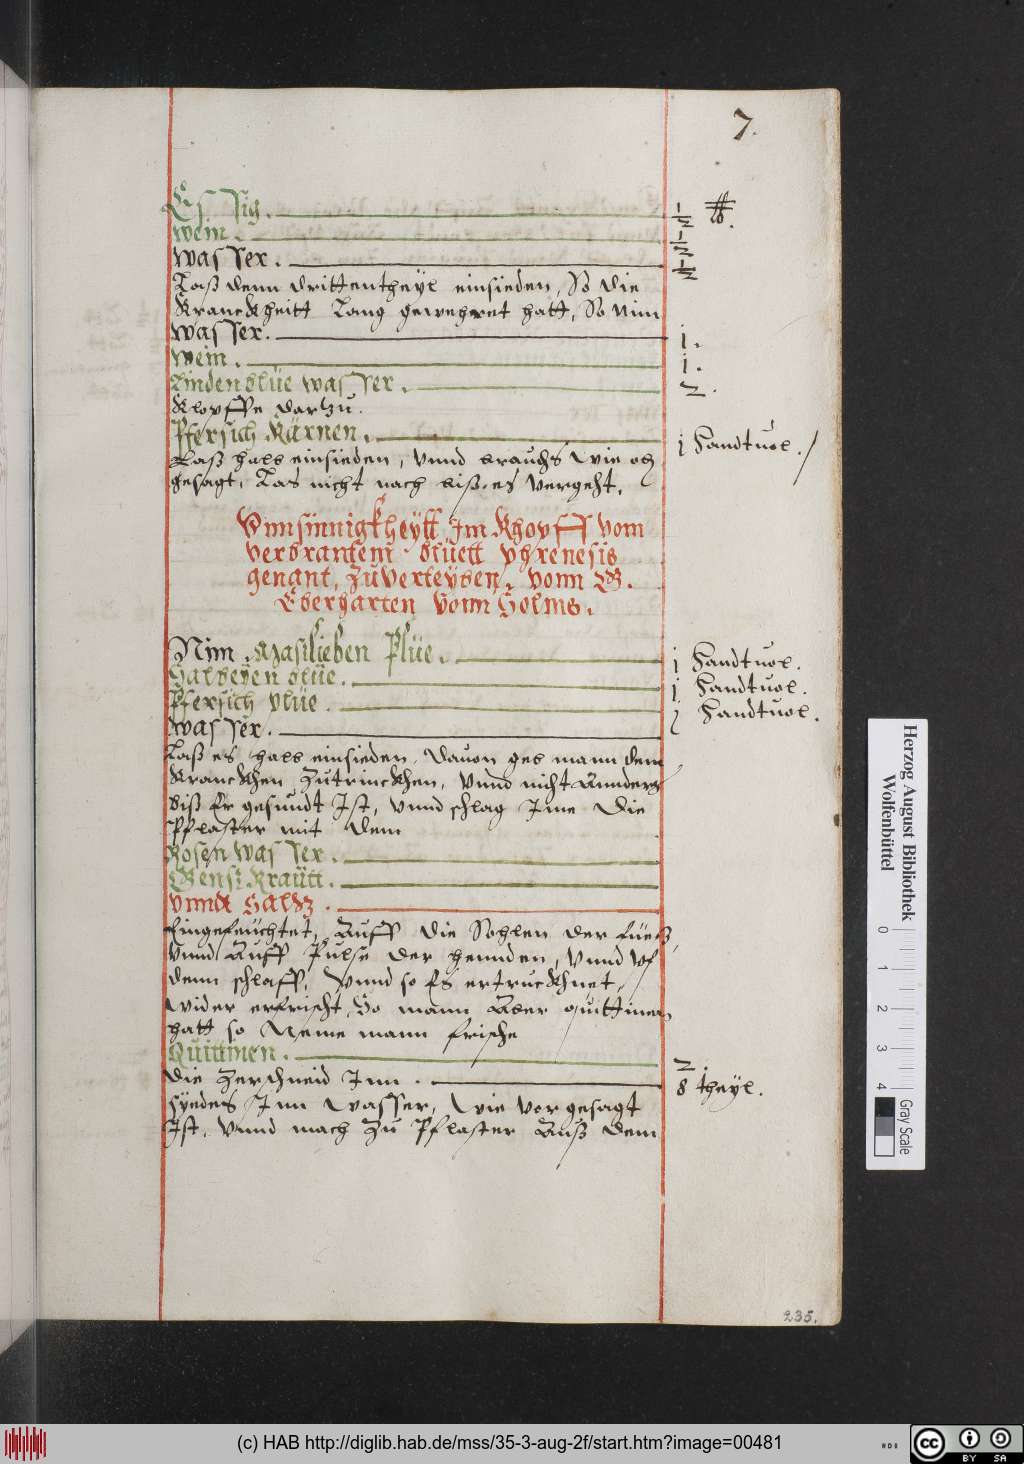 7.
Essig. ½ ℔.
Wein. ½
Wasser. ½
Laß denn drittentheyl einsieden, So die
Kranckheitt Lang gewehret hatt, So Nim
Wasser. j.
Wein. j.
Lindenblüe Wasser. 2.
Klopffe darzu.
Pfersich Kärnen. j Handtuol.
Laß halb einsieden, Vnnd brauchs Wie ob
gesagt, Las nicht nach biß es Vergeht.
Vnnsinnigkheytt Im Khopff Vom
verbrantem blüett phrenesis
genant, Zuverteyben, vonn G.
Eberharten Vonn Holms.
Nim. Masilieben Plüe. j Handtuol.
Salbeyen blüe. j Handtuol.
Pfersich plüe. j Handtuol.
Wasser.
Laß es halb einsieden, Dauon geb mann dem
Kranckhen Zutrinckhen, Vnnd nicht Annders
biß Er gesundt Ist, Vnnd schlag Ime Die
Pflaster mit dem
Rosen Wasser.
Gensz Krautt.
Vnnd Saltz.
Eingefeuchtet, Auff Die Sohlen der füeß,
Vnnd Auff Pulse der hennden, Vnnd Vf
denn schlaff, Vnnd so Es ertrucknet,
Wider erfrischt, So mann Aber Quittinen
hatt so Neme mann frische
Quittinen. 2
Die Zerschneid Inn. 8 theyl.
Syeders Inn Wasser, Wie Vor gesagt
Ist, Vnnd mach Zu Pflaster Auß dem
235.
Herzog August Bibliothek
Wolfenbüttel
0 1 2 3 4
Gray Scale
(c) HAB http://diglib.hab.de/mss/35-3-aug-2f/start.htm?image=00481
CC BY SA